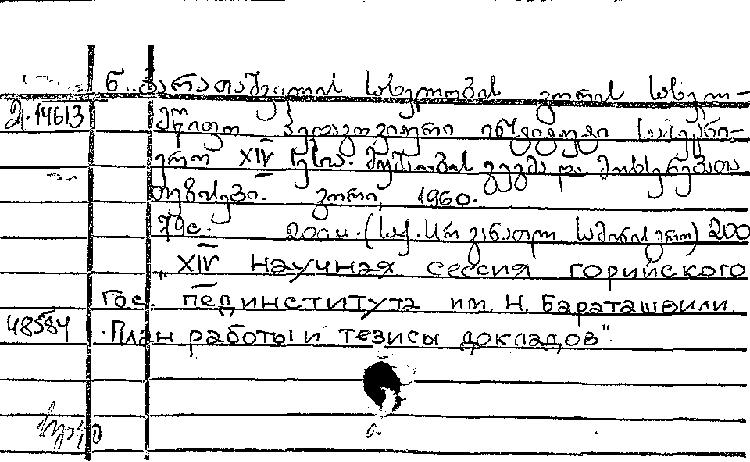 ნ. ბარათაშვილის სახელობის გორის სახელ-
მ.14613
მწიფო პედაგოგიური ინსტიტუტი სამეცნი-
ერო XIV სესია. მუშაობის გეგმა და მოხსენებათა
თეზისები. გორი, 1960.
79გ. 200ც. (საქ. სსრ განათლ. სამინისტრო) 200
„XIV научная сессия горийского
гос. пединститута им. Н. Бараташвили
48584
План работы и тезисы докладов"